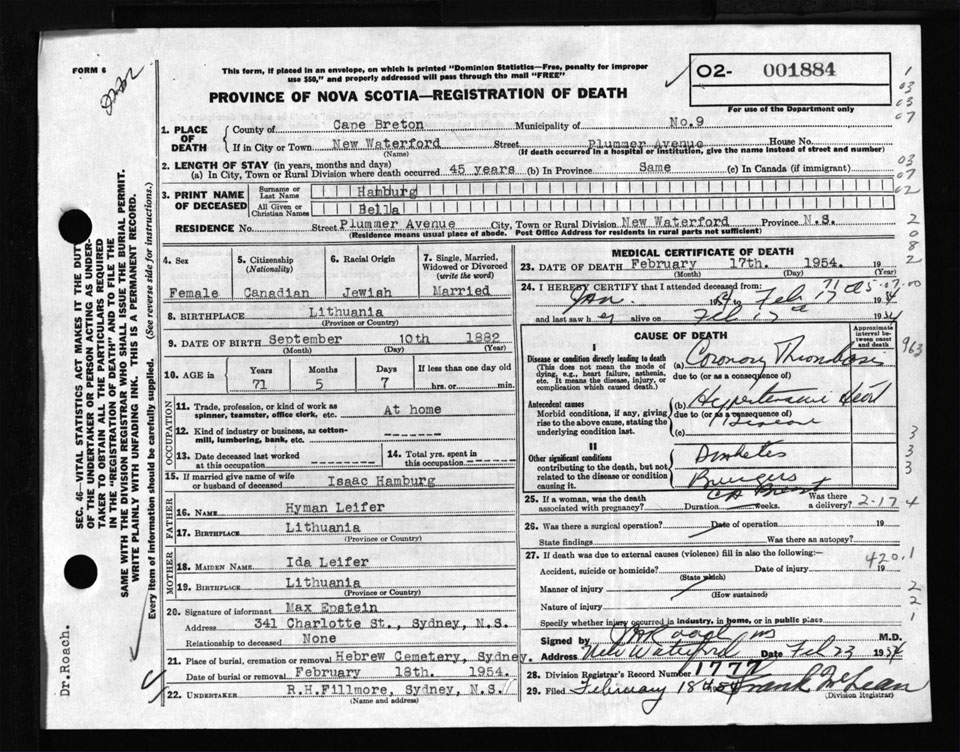 FORM 6
This form, if placed in an envelope, on which is printed "Dominion Statistics—Free, penalty for improper
use $50," and properly addressed will pass through the mail "FREE"
02- 001884
For use of the Department only
PROVINCE OF NOVA SCOTIA—REGISTRATION OF DEATH
1. PLACE OF DEATH
County of Cape Breton Municipality of No.9
If in City or Town New Waterford Street Plummer Avenue House No.
(Name) (If death occurred in a hospital or institution, give the name instead of street and number)
2. LENGTH OF STAY (in years, months and days)
(a) In City, Town or Rural Division where death occurred 45 years (b) In Province Same (c) In Canada (if immigrant)
3. PRINT NAME OF DECEASED
Surname or Last Name Hamburg
All Given or Christian Names Bella
RESIDENCE No. Street Plummer Avenue City, Town or Rural Division New Waterford Province N.S.
(Residence means usual place of abode. Post Office Address for residents in rural parts not sufficient)
4. Sex
Female
5. Citizenship (Nationality)
Canadian
6. Racial Origin
Jewish
7. Single, Married, Widowed or Divorced (write the word)
Married
8. BIRTHPLACE Lithuania
(Province or Country)
9. DATE OF BIRTH September 10th 1882
(Month) (Day) (Year)
10. AGE in
Years Months Days If less than one day old
71 5 7 hrs. or min.
OCCUPATION
11. Trade, profession, or kind of work as spinner, teamster, office clerk, etc. At home
12. Kind of industry or business, as cotton-mill, lumbering, bank, etc. -------
13. Date deceased last worked at this occupation
14. Total yrs. spent in this occupation -------
15. If married give name of wife or husband of deceased Isaac Hamburg
FATHER
16. NAME Hyman Leifer
17. BIRTHPLACE Lithuania
(Province or Country)
MOTHER
18. MAIDEN NAME Ida Leifer
19. BIRTHPLACE Lithuania
(Province or Country)
20. Signature of informant Max Epstein
Address 341 Charlotte St., Sydney, N.S.
Relationship to deceased None
21. Place of burial, cremation or removal Hebrew Cemetery, Sydney.
Date of burial or removal February 18th. 1954.
22. UNDERTAKER R.H.Fillmore, Sydney, N.S.
(Name and address)
MEDICAL CERTIFICATE OF DEATH
23. DATE OF DEATH February 17th. 1954. 19
(Month) (Day) (Year)
24. I HEREBY CERTIFY that I attended deceased from:
Jan. 1954 to Feb 17 1954
and last saw her alive on Feb 17 1954
CAUSE OF DEATH
Approximate interval between onset and death
I
Disease or condition directly leading to death
(This does not mean the mode of dying, e.g., heart failure, asthenia, etc. It means the disease, injury, or complication which caused death.)
(a) Coronary Thrombosis
due to (or as a consequence of)
Antecedent causes
Morbid conditions, if any, giving rise to the above cause, stating the underlying condition last.
(b) Hypertensive Heart Disease
due to (or as a consequence of)
(c)
II
Other significant conditions contributing to the death, but not related to the disease or condition causing it.
Diabetes
Ca Breast
25. If a woman, was the death associated with pregnancy? Duration weeks. Was there a delivery?
2-17 4
26. Was there a surgical operation? Date of operation 19
State findings Was there an autopsy?
27. If death was due to external causes (violence) fill in also the following:
420.1
Accident, suicide or homicide? Date of injury 19
(State which)
Manner of injury
(How sustained)
Nature of injury
Specify whether injury occurred in industry, in home, or in public place
Signed by M.D.
Address New Waterford Date Feb 23 1954
28. Division Registrar's Record Number 1777
29. Filed February 18 1954 Frank McLean
(Division Registrar)
SEC. 46—VITAL STATISTICS ACT MAKES IT THE DUTY
OF THE UNDERTAKER OR PERSON ACTING AS UNDER-
TAKER TO OBTAIN ALL THE PARTICULARS REQUIRED
IN THE "REGISTRATION OF DEATH" AND TO FILE THE
SAME WITH THE DIVISION REGISTRAR WHO SHALL ISSUE THE BURIAL PERMIT.
WRITE PLAINLY WITH UNFADING INK. THIS IS A PERMANENT RECORD.
Every item of information should be carefully supplied. (See reverse side for instructions.)
Dr.Roach.
1
03
03
07
03
07
02
2
0
8
2
07.00
963
3
3
3
2
2
1